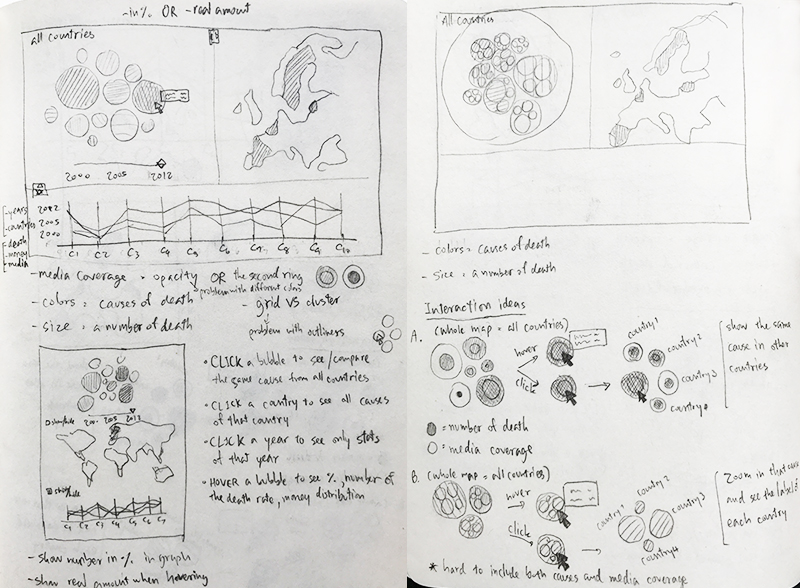 -in% OR -real amount
all countries
2000 2005 2012
years
countries
death
money
media
2012
2005
2000
C1 C2 C3 C4 C5 C6 C7 C8 C9 C10
- media coverage = opacity OR the second ring
problem with different colors
- colors = causes of death
- size = a number of death
- grid VS cluster
problem with outliners
• CLICK a bubble to see/compare
the same cause from all countries
• CLICK a country to see all causes
of that country
• CLICK a year to see only stats
of that year
• HOVER a bubble to see %, number of
the death rate, money distribution
show/hide 200- 2005 2012
show/hide
C1 C2 C3 C4 C5 C6 C7
- show number in % in graph
- show real amount when hovering
All countries
- colors = causes of death
- size = a number of death
Interaction ideas
A. (whole map = all countries)
hover
click
country1
country2
country3
country4
show the same
cause in other
countries
= number of death
= media coverage
B. (whole map = all countries)
hover
click
country1
country2
country3
country4
Zoom in that
and see the label of
each country
* hard to include both causes and media coverage